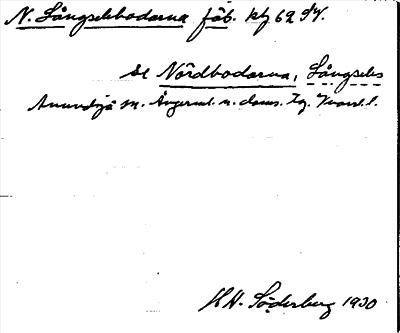 N. Långselebodarna fäb. kbl 62 SV.
se Nordbodarna, Långsele
Anundsjö sn. Ångerml. n. doms. tg. Västnl. l.
H. W. Söderberg 1930